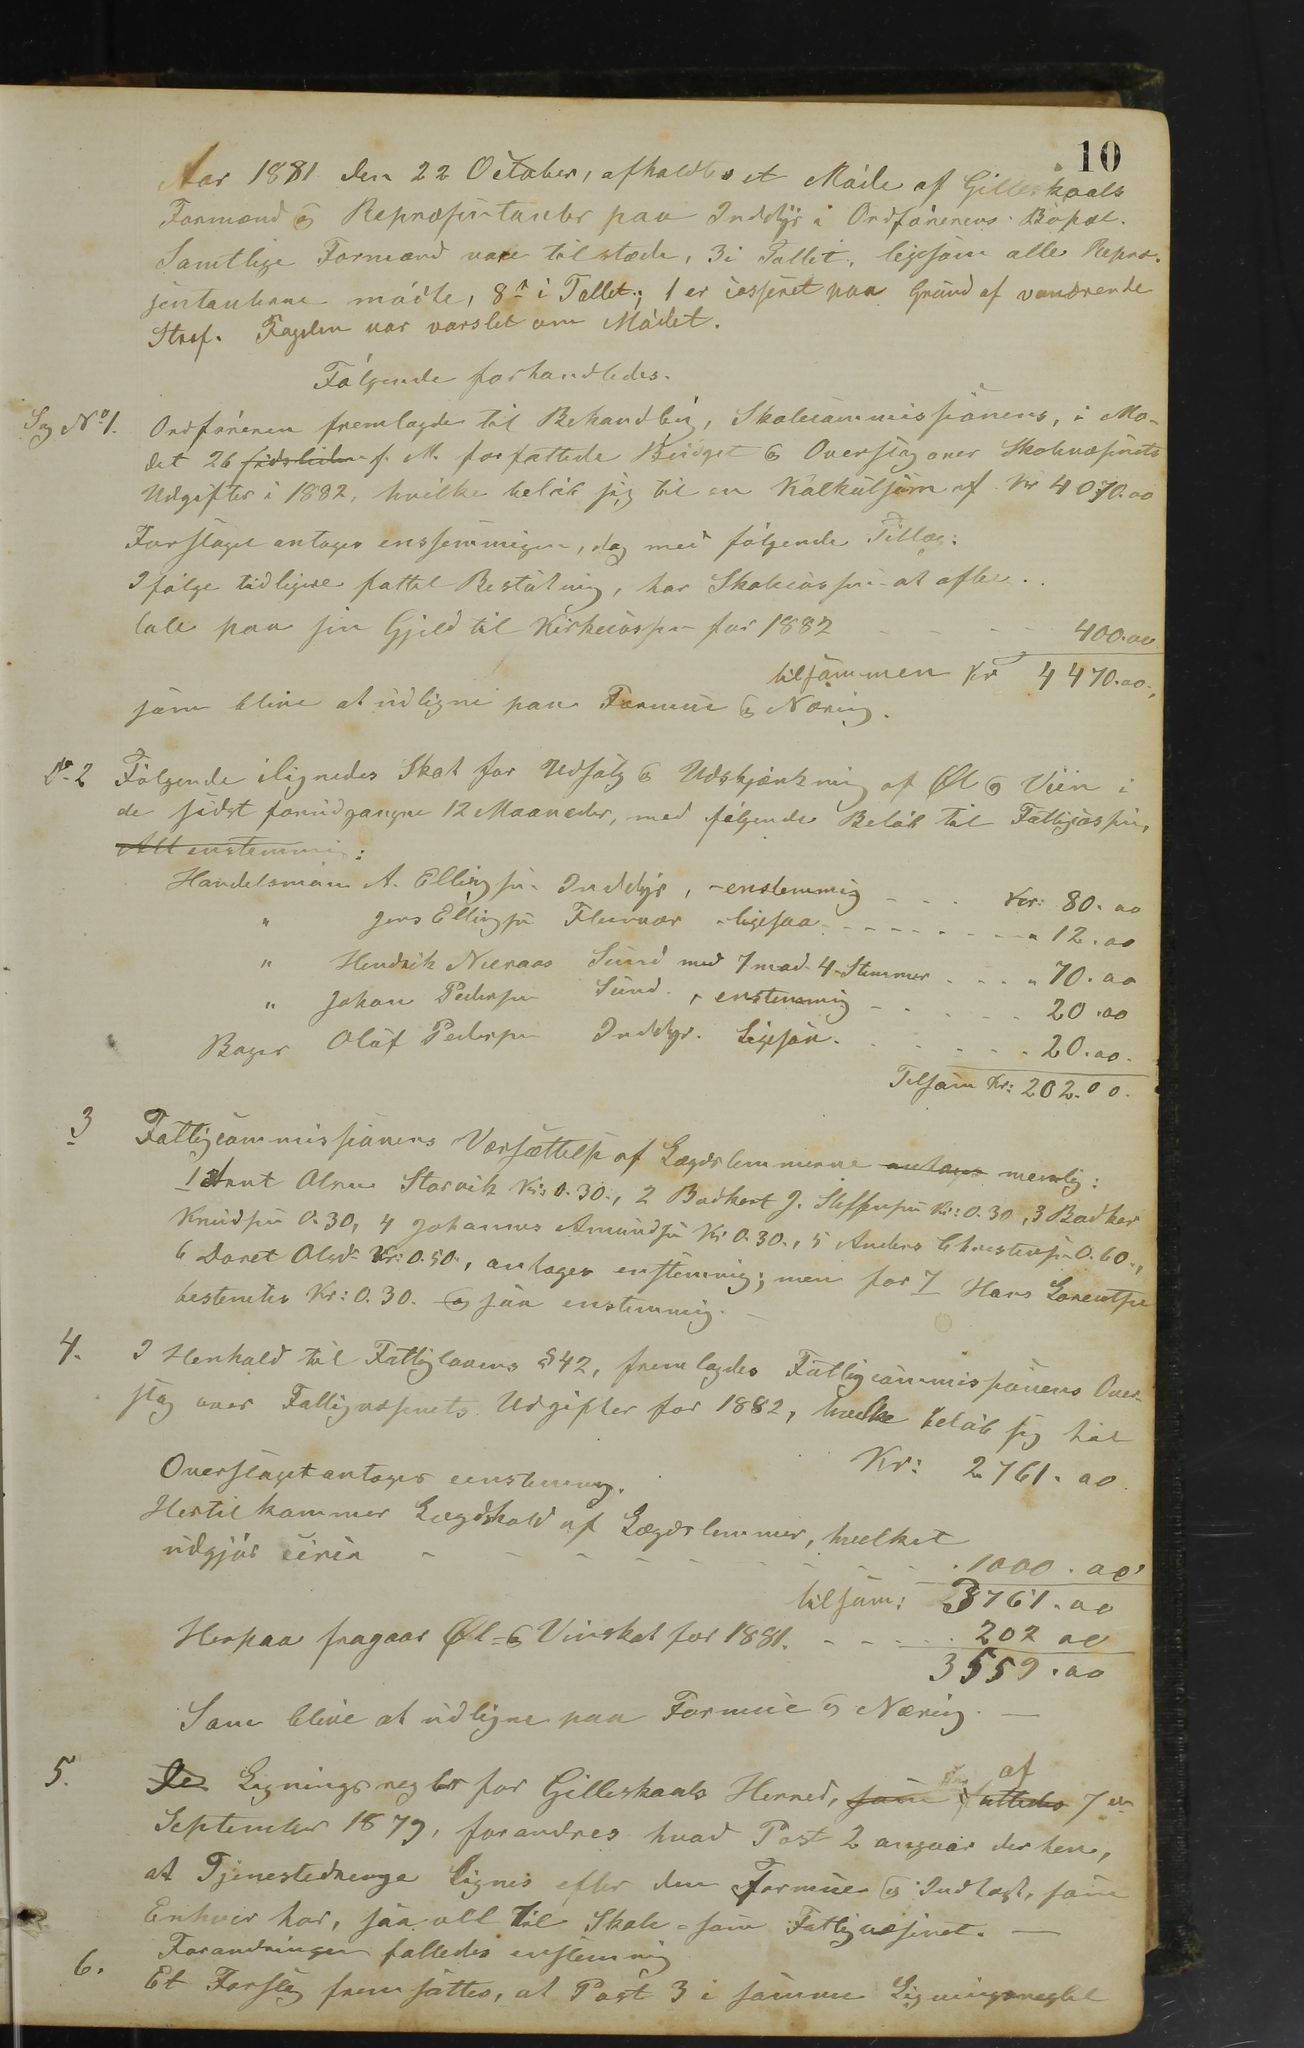 10
Aar 1881 den 22 October, afholdtes et Möde af Gilleskaals
Formænd og Repræsentanter paa Inddyr i Ordförerens Bopæl.
Samtlige Formænd vare tilstæde, 3 i Tallet, ligesom alle Repræ-
sentanterne mödte, 8 i Tallet; 1 er casseret paa Grund af vanærende
Straf. Fogden var varslet om Mödet.
Fölgende forhandledes.
Sag No 1. Ordföreren fremlagde til Behandling, Skolecommissionens, i Mö-
det 26 f. M. forfattede Budget og Overslag over Skolevæsenets
Udgifter i 1882, hvilke belöb sig til en Kalkulsum af Kr 4070.00
Forslaget antoges enssemmigen, dog med fölgende Tillæg:
Ifölge tidligere fattet Beslutning, har Skolecassen at afbe-
tale paa sin Gjeld til Kirkecassen for 1882 - - - - 400.00
tilsammen Kr 4470.00,
som blive at udligne paa Formue og Næring.
No 2 Fölgende ilignedes Skat for Udsalg og Udskjænkning af Øl og Viin i
de sidst forudgangne 12 Maaneder, med fölgende Belöb til Fattigcassen,
Alt enstemmig:
Handelsmann A. Ellingsen Inddyr, - enstemmig - - - Kr: 80.00
" Jens Ellingsen Fleinvær - ligesaa - - - - - - - " 12.00
" Hendrik Sund med 7 mod 4 Stemmer - - - " 70.00
" Johan Pedersen Sund - enstemmig - - - - - 20.00
Bager Oluf Pedersen Inddyr. Ligesaa. - - - - - - 20.00.
Tilsam Kr: 202.00.
3 Fattigcommissionens Værsættelse af Lægdslemmerne antages nemlig:
1 Arnt Olsen Storvik Kr: 0.30., 2 J. Steffensen Kr: 0.30, 3
Knudsen 0.30, 4 Johannes Amundsen Kr 0.30., 5 Anders Christensen 0.60.,
6 Doret Olsd. Kr: 0.50., antages enstemmig; men for 7 Hans Lorentsen
bestemtes Kr: 0.30. og saa enstemmig. -
4. I Henhold til Fattiglovens § 42, fremlagdes Fattigcommissionens Over-
slag over Fattigvæsenets Udgifter for 1882, hvilke belöb sig til
Kr: 2761.00
Overslaget antoges eenstemmig.
Hertil kommer Lægdshold af Lægdslemmer, hvilket
udgjör circa - - - - - - - - - - 1000.00,
tilsam: 3761.00
Herpaa fragaar Øl- og Vinskat for 1881. - - - - - 202 00
3559.00
Som blive at udligne paa Formue og Næring. —
5. De Ligningsregler for Gilleskaals Herred, som fattedes af 7de
September 1879, forandres hvad Post 2 angaar derhen,
at Tjenestedrenge lignes efter den Formue og Indtægt, som
Enhver har, saa vel til Skole- som Fattigvæsenet. —
Forandringen fattedes enstemmig
6. Et Forslag fremsattes, at Post 3 i samme Ligningsregler